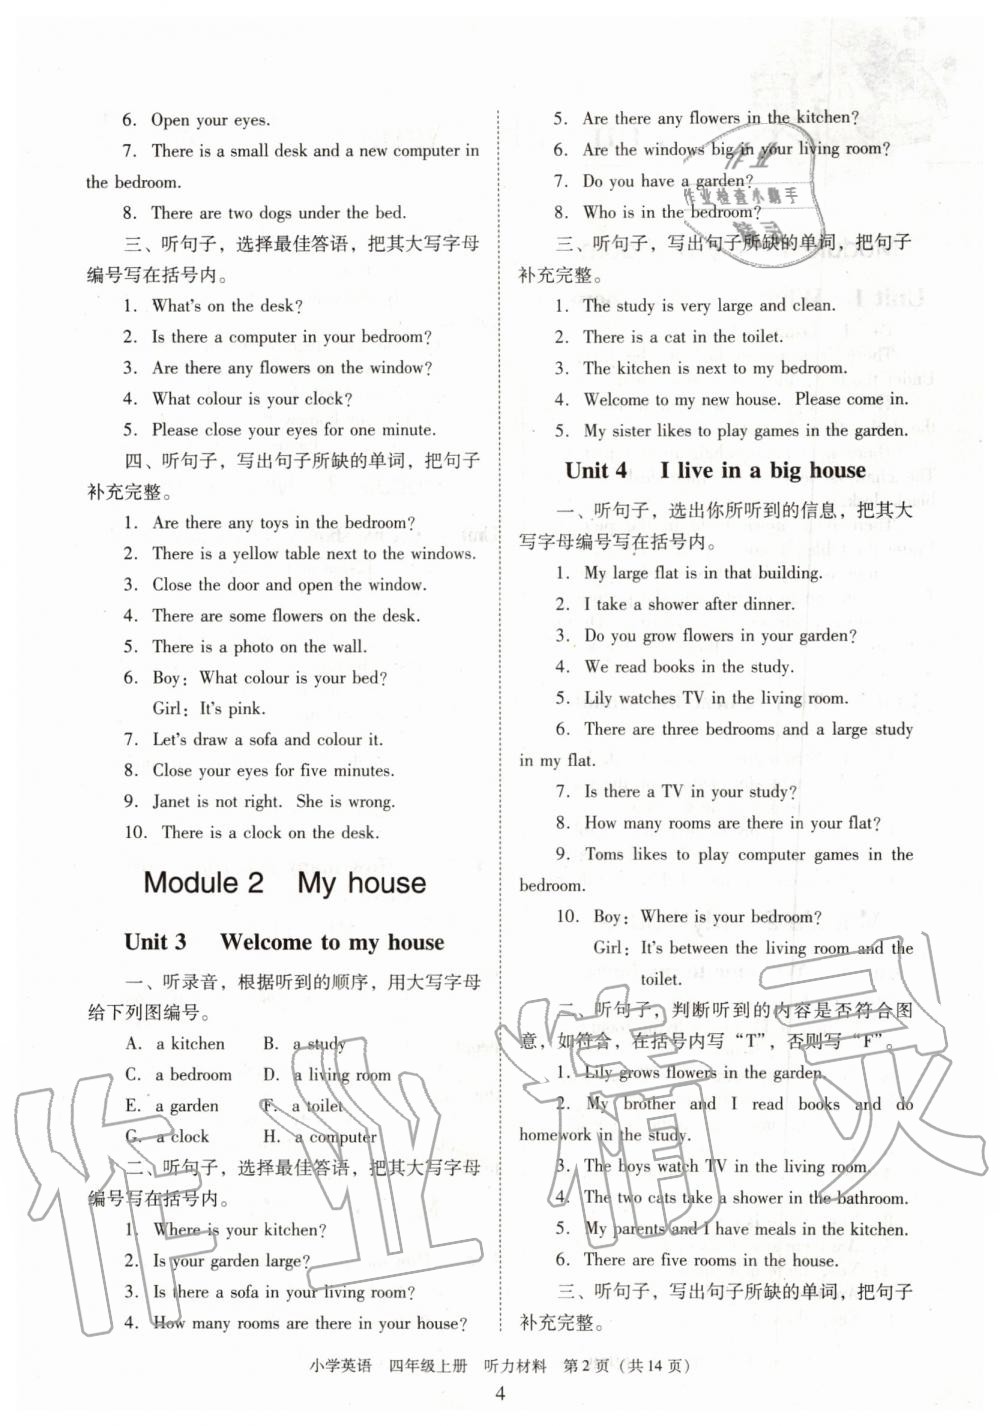 6. Open your eyes.
7. There is a small desk and a new computer in
the bedroom.
8. There are two dogs under the bed.
三、听句子，选择最佳答语，把其大写字母
编号写在括号内。
1. What's on the desk?
2. Is there a computer in your bedroom?
3. Are there any flowers on the window?
4. What colour is your clock?
5. Please close your eyes for one minute.
四、听句子，写出句子所缺的单词，把句子
补充完整。
1. Are there any toys in the bedroom?
2. There is a yellow table next to the windows.
3. Close the door and open the window.
4. There are some flowers on the desk.
5. There is a photo on the wall.
6. Boy: What colour is your bed?
Girl: It's pink.
7. Let's draw a sofa and colour it.
8. Close your eyes for five minutes.
9. Janet is not right. She is wrong.
10. There is a clock on the desk.
Module 2 My house
Unit 3 Welcome to my house
一、听录音，根据听到的顺序，用大写字母
给下列图编号。
A. a kitchen B. a study
C. a bedroom D. a living room
E. a garden F. a toilet
G. a clock H. a computer
二、听句子，选择最佳答语，把其大写字母
编号写在括号内。
1. Where is your kitchen?
2. Is your garden large?
3. Is there a sofa in your living room?
4. How many rooms are there in your house?
5. Are there any flowers in the kitchen?
6. Are the windows big in your living room?
7. Do you have a garden?
8. Who is in the bedroom?
三、听句子，写出句子所缺的单词，把句子
补充完整。
1. The study is very large and clean.
2. There is a cat in the toilet.
3. The kitchen is next to my bedroom.
4. Welcome to my new house. Please come in.
5. My sister likes to play games in the garden.
Unit 4 I live in a big house
一、听句子，选出你所听到的信息，把其大
写字母编号写在括号内。
1. My large flat is in that building.
2. I take a shower after dinner.
3. Do you grow flowers in your garden?
4. We read books in the study.
5. Lily watches TV in the living room.
6. There are three bedrooms and a large study
in my flat.
7. Is there a TV in your study?
8. How many rooms are there in your flat?
9. Toms likes to play computer games in the
bedroom.
10. Boy: Where is your bedroom?
Girl: It's between the living room and the
toilet.
二、听句子，判断听到的内容是否符合图
意，如符合，在括号内写“T”，否则写“F”。
1. Lily grows flowers in the garden.
2. My brother and I read books and do
homework in the study.
3. The boys watch TV in the living room.
4. The two cats take a shower in the bathroom.
5. My parents and I have meals in the kitchen.
6. There are five rooms in the house.
三、听句子，写出句子所缺的单词，把句子
补充完整。
小学英语 四年级上册 听力材料 第2页（共14页）
4
作业
作业检查小助手
精灵
作业精灵